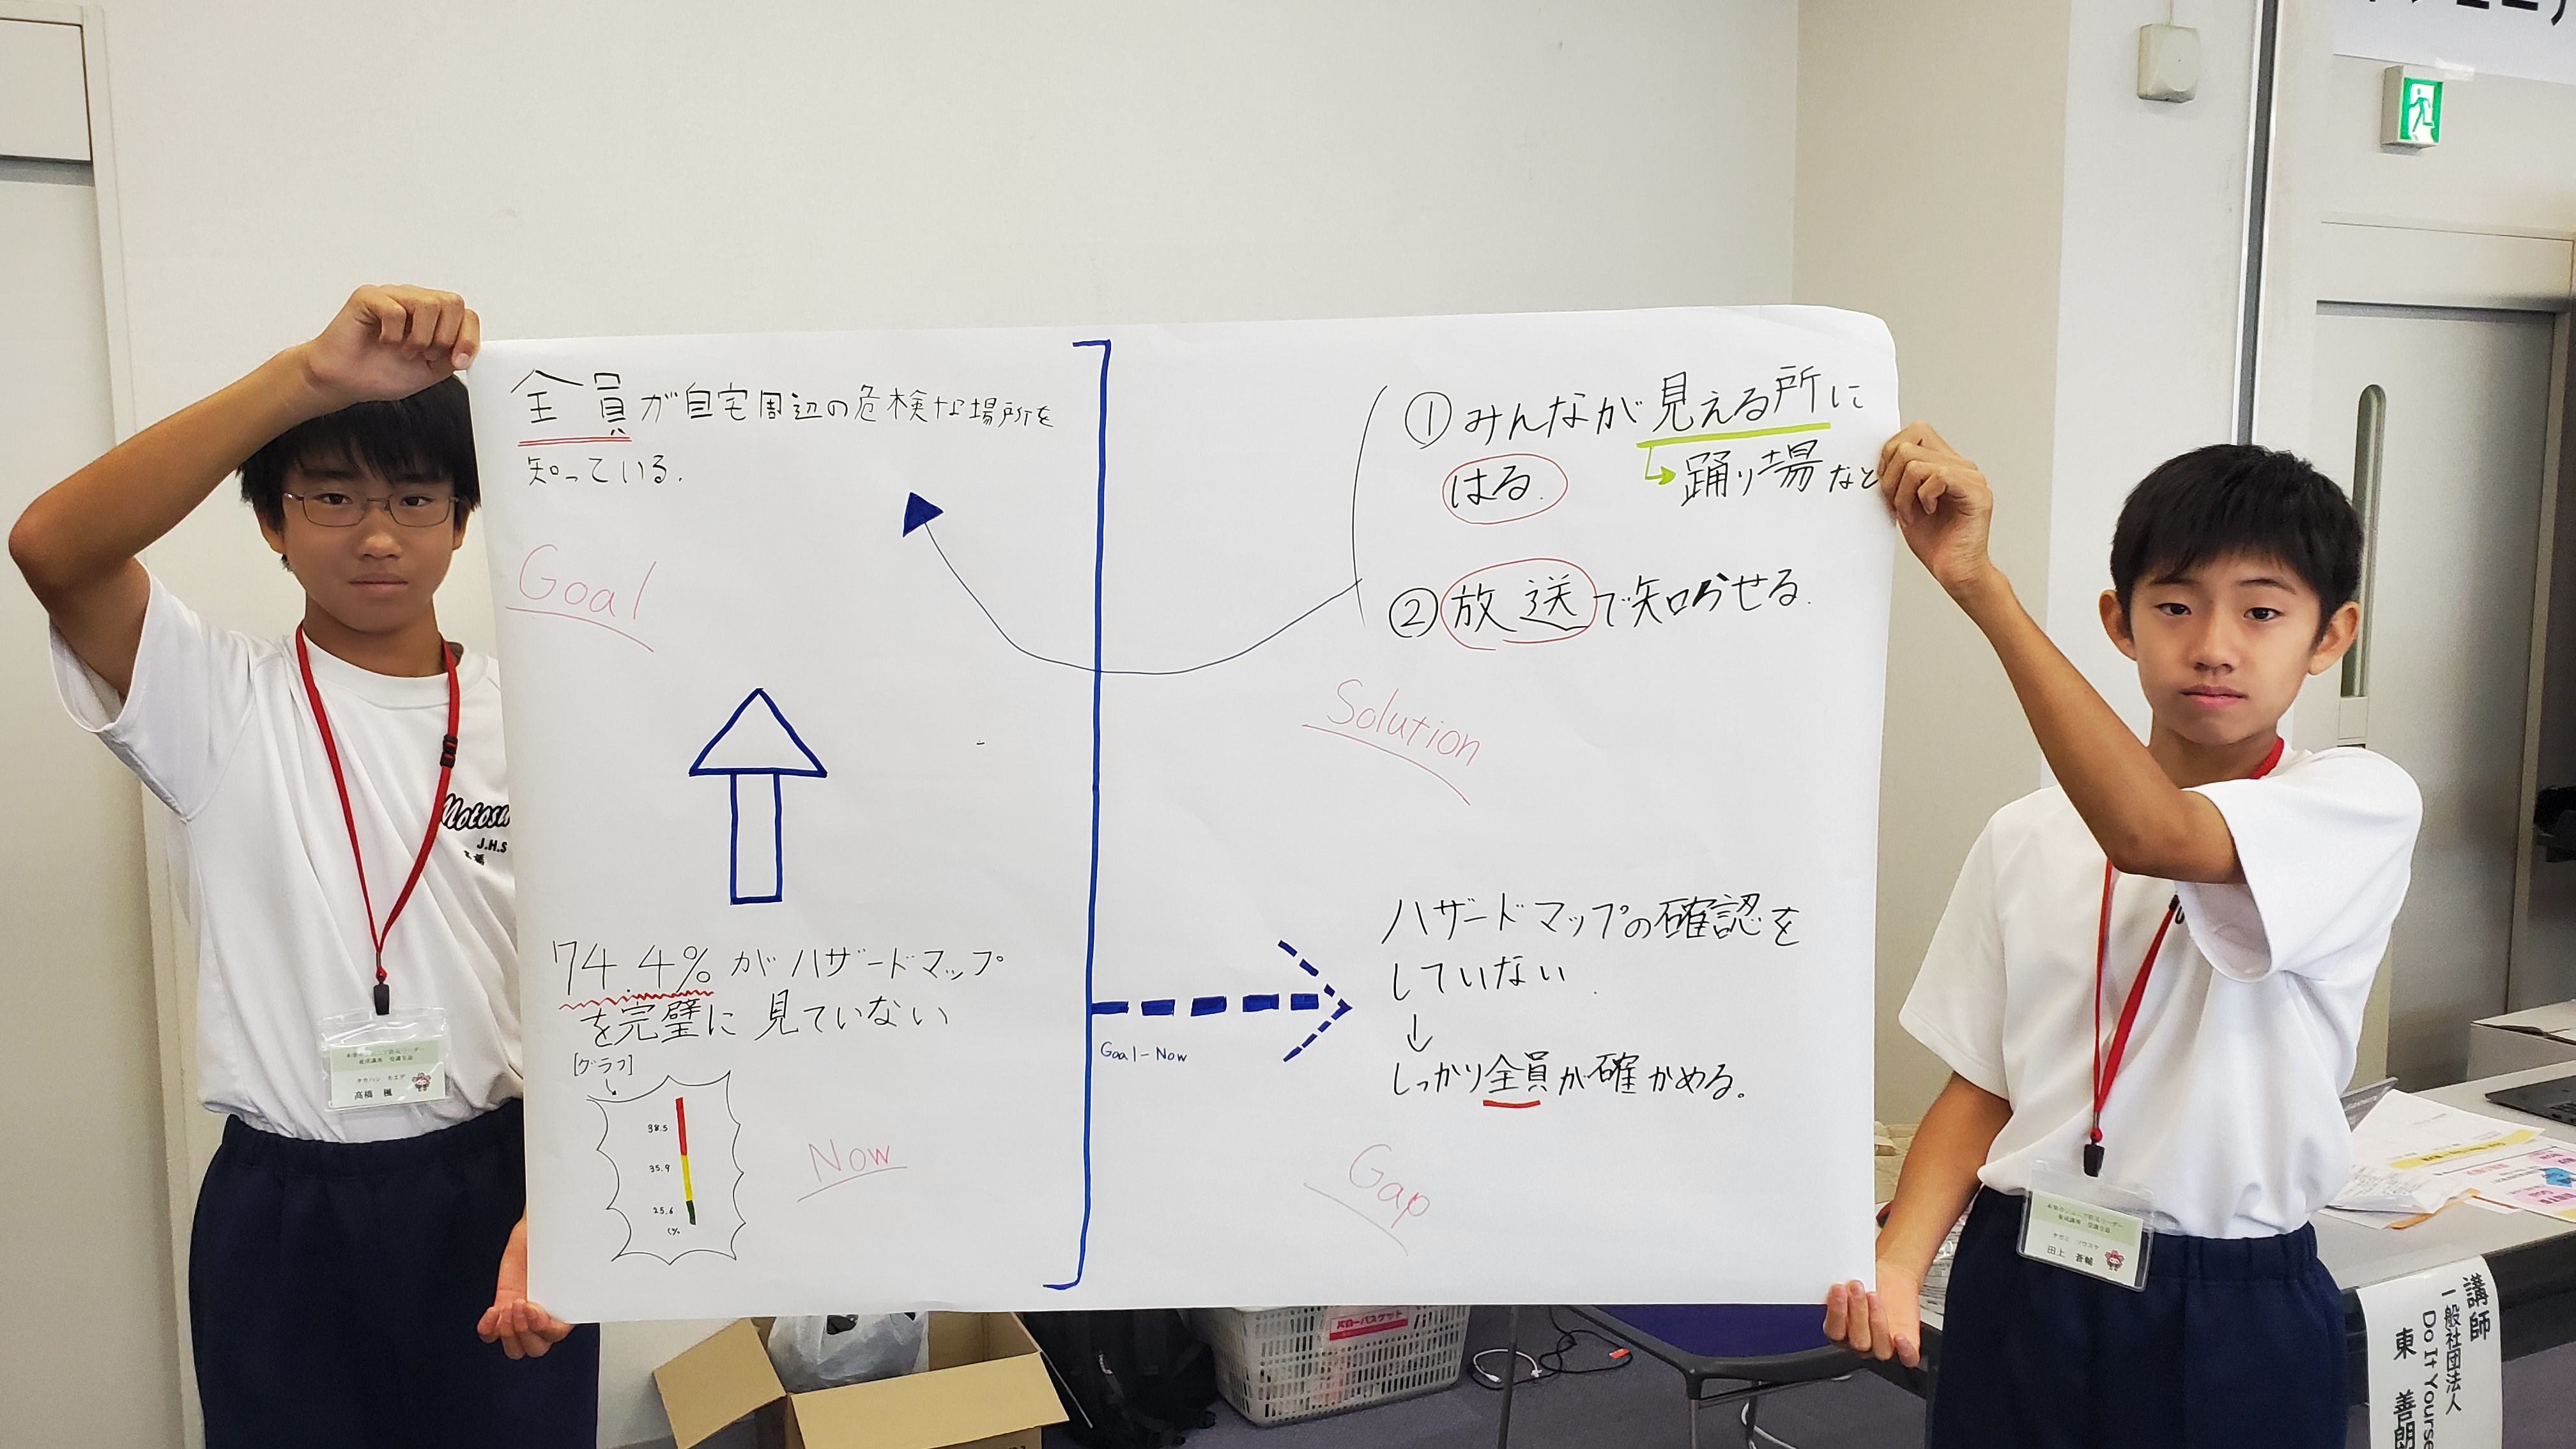 全員が自宅周辺の危検な場所を
知っている.
Goal
74.4%がハザードマップ
を完璧に見ていない
[グラフ]
38.5
35.9
25.6
(%
Now
Goal-Now
①みんなが見える所に
はる.
踊り場など
②放送で知らせる.
Solution
ハザードマップの確認を
していない.
↓
しっかり全員が確かめる。
Gap
Motosu
J.H.S
高橋 楓
田上 蒼輔
講師
一般社団法人
Do It Yourse
東 善朗